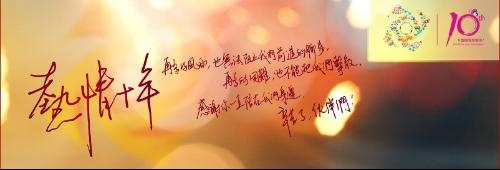 熱情十年
再多的風雨,也無法阻止我們前進的腳步,
再多的困難,也不能把我們擊敗.
感謝你一直陪在我們身邊.
辛苦了,伙伴們!
10th